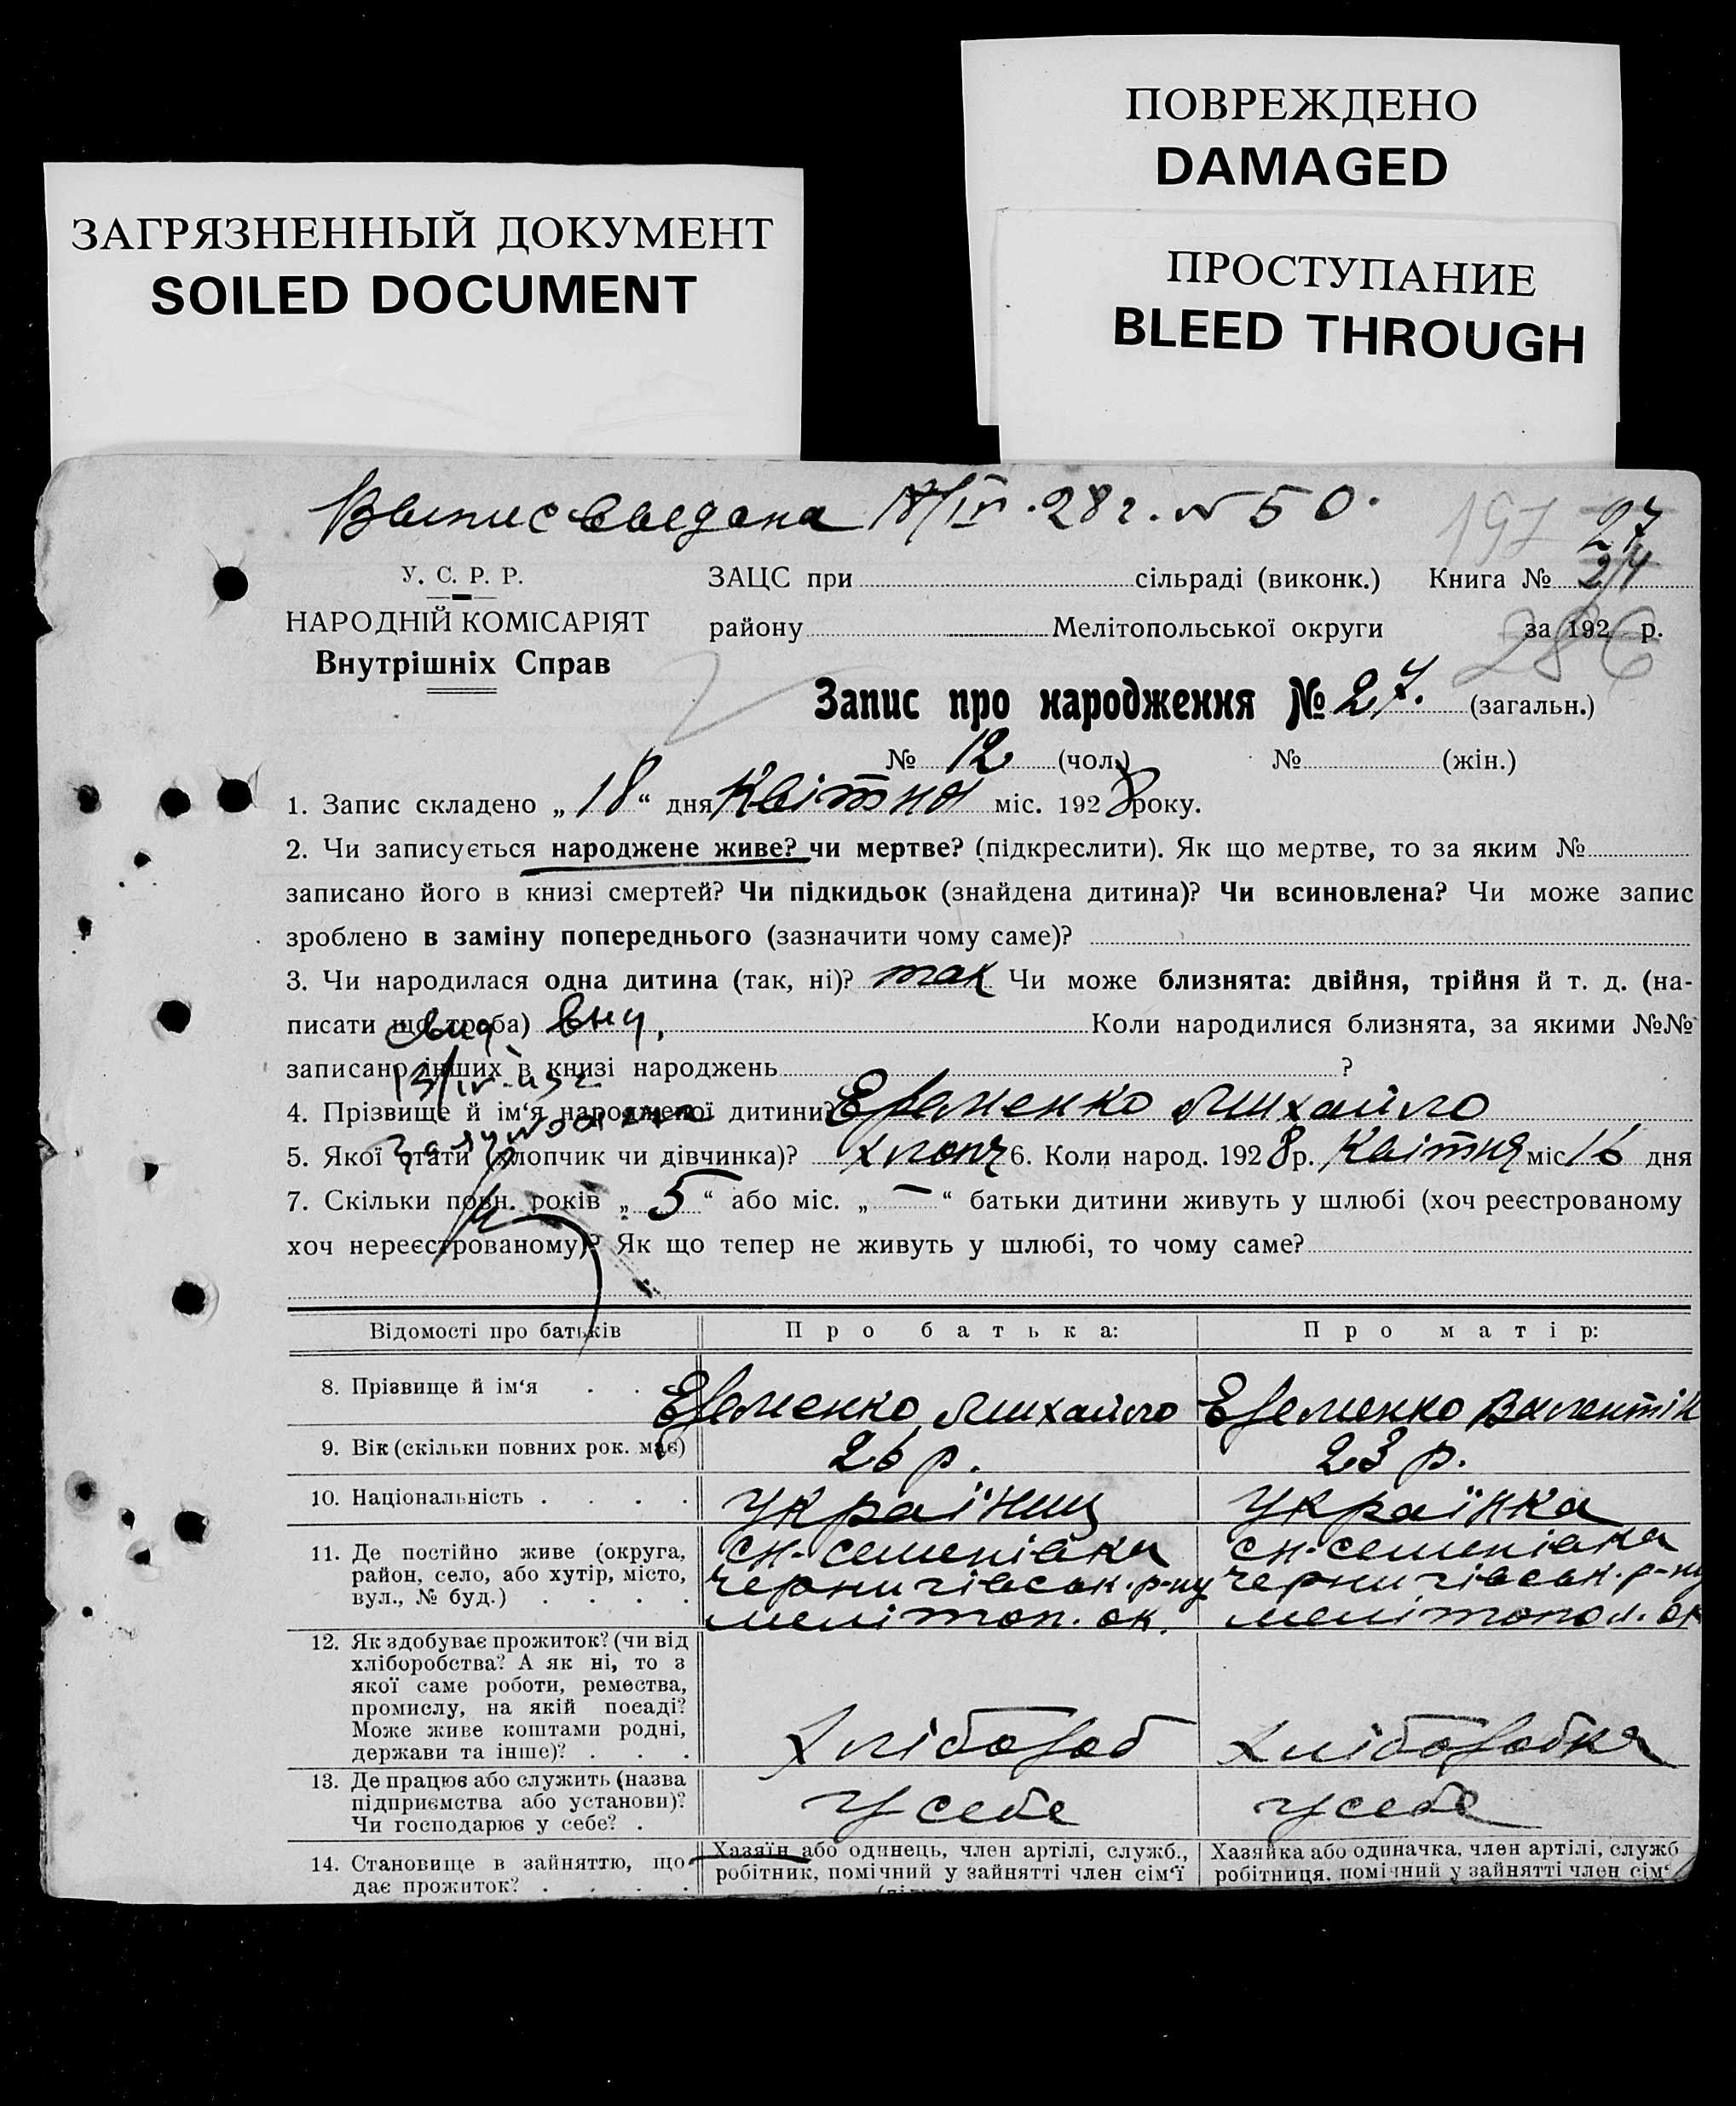 ПОВРЕЖДЕНО
DAMAGED
ЗАГРЯЗНЕННЫЙ ДОКУМЕНТ
SOILED DOCUMENT
ПРОСТУПАНИЕ
BLEED THROUGH
Выпис выдана 18/IV.28 г. № 50.
197 27
У. С. Р. Р.
НАРОДНІЙ КОМІСАРІЯТ
Внутрішніх Справ
ЗАЦС при сільраді (виконк.) Книга № 24
району Мелітопольської округи за 192 р.
286
Запис про народження № 27. (загальн.)
№ 12 (чол.) № (жін.)
1. Запис складено „ 18 “ дня Квітня міс. 1928 року.
2. Чи записується народжене живе? чи мертве? (підкреслити). Як що мертве, то за яким №
записано його в книзі смертей? Чи підкидьок (знайдена дитина)? Чи всиновлена? Чи може запис
зроблено в заміну попереднього (зазначити чому саме)?
3. Чи народилася одна дитина (так, ні)? так Чи може близнята: двійня, трійня й т. д. (на-
писати що треба) Коли народилися близнята, за якими №№
записано інших в книзі народжень ?
4. Прізвище й ім‘я народженої дитини? Ефеменко Михайло
5. Якої стати (хлопчик чи дівчинка)? хлопч 6. Коли народ. 1928 р. Квітня міс 16 дня
7. Скільки повн. років „ 5 “ або міс. „ — “ батьки дитини живуть у шлюбі (хоч реєстрованому
хоч нереєстрованому)? Як що тепер не живуть у шлюбі, то чому саме?
Відомості про батьків
Про батька:
Про матір:
8. Прізвище й ім‘я . .
Ефеменко Михайло
Ефеменко
9. Вік (скільки повних рок. має)
26 р.
23 р.
10. Національність . . . .
Українць
Українка
11. Де постійно живе (округа,
район, село, або хутір, місто,
вул., № буд.) . . . .
с. Н-семенівка
Чернигівськ. р-ну
меліtoп. ок.
с. Н-семенівка
Чернигівськ. р-ну
мелітопол. ок
12. Як здобуває прожиток? (чи від
хліборобства? А як ні, то з
якої саме роботи, ремества,
промислу, на якій посаді?
Може живе коштами родні,
держави та інше)? . . .
Хлібороб
Хліборобка
13. Де працює або служить (назва
підприємства або установи)?
Чи господарює у себе? .
у себе
у себе
14. Становище в зайняттю, що
дає прожиток? . . . .
Хазяїн або одинець, член артілі, служб.,
робітник, помічний у зайнятті член сім‘ї
Хазяйка або одиначка, член артілі, служб
робітниця, помічний у зайнятті член сім‘